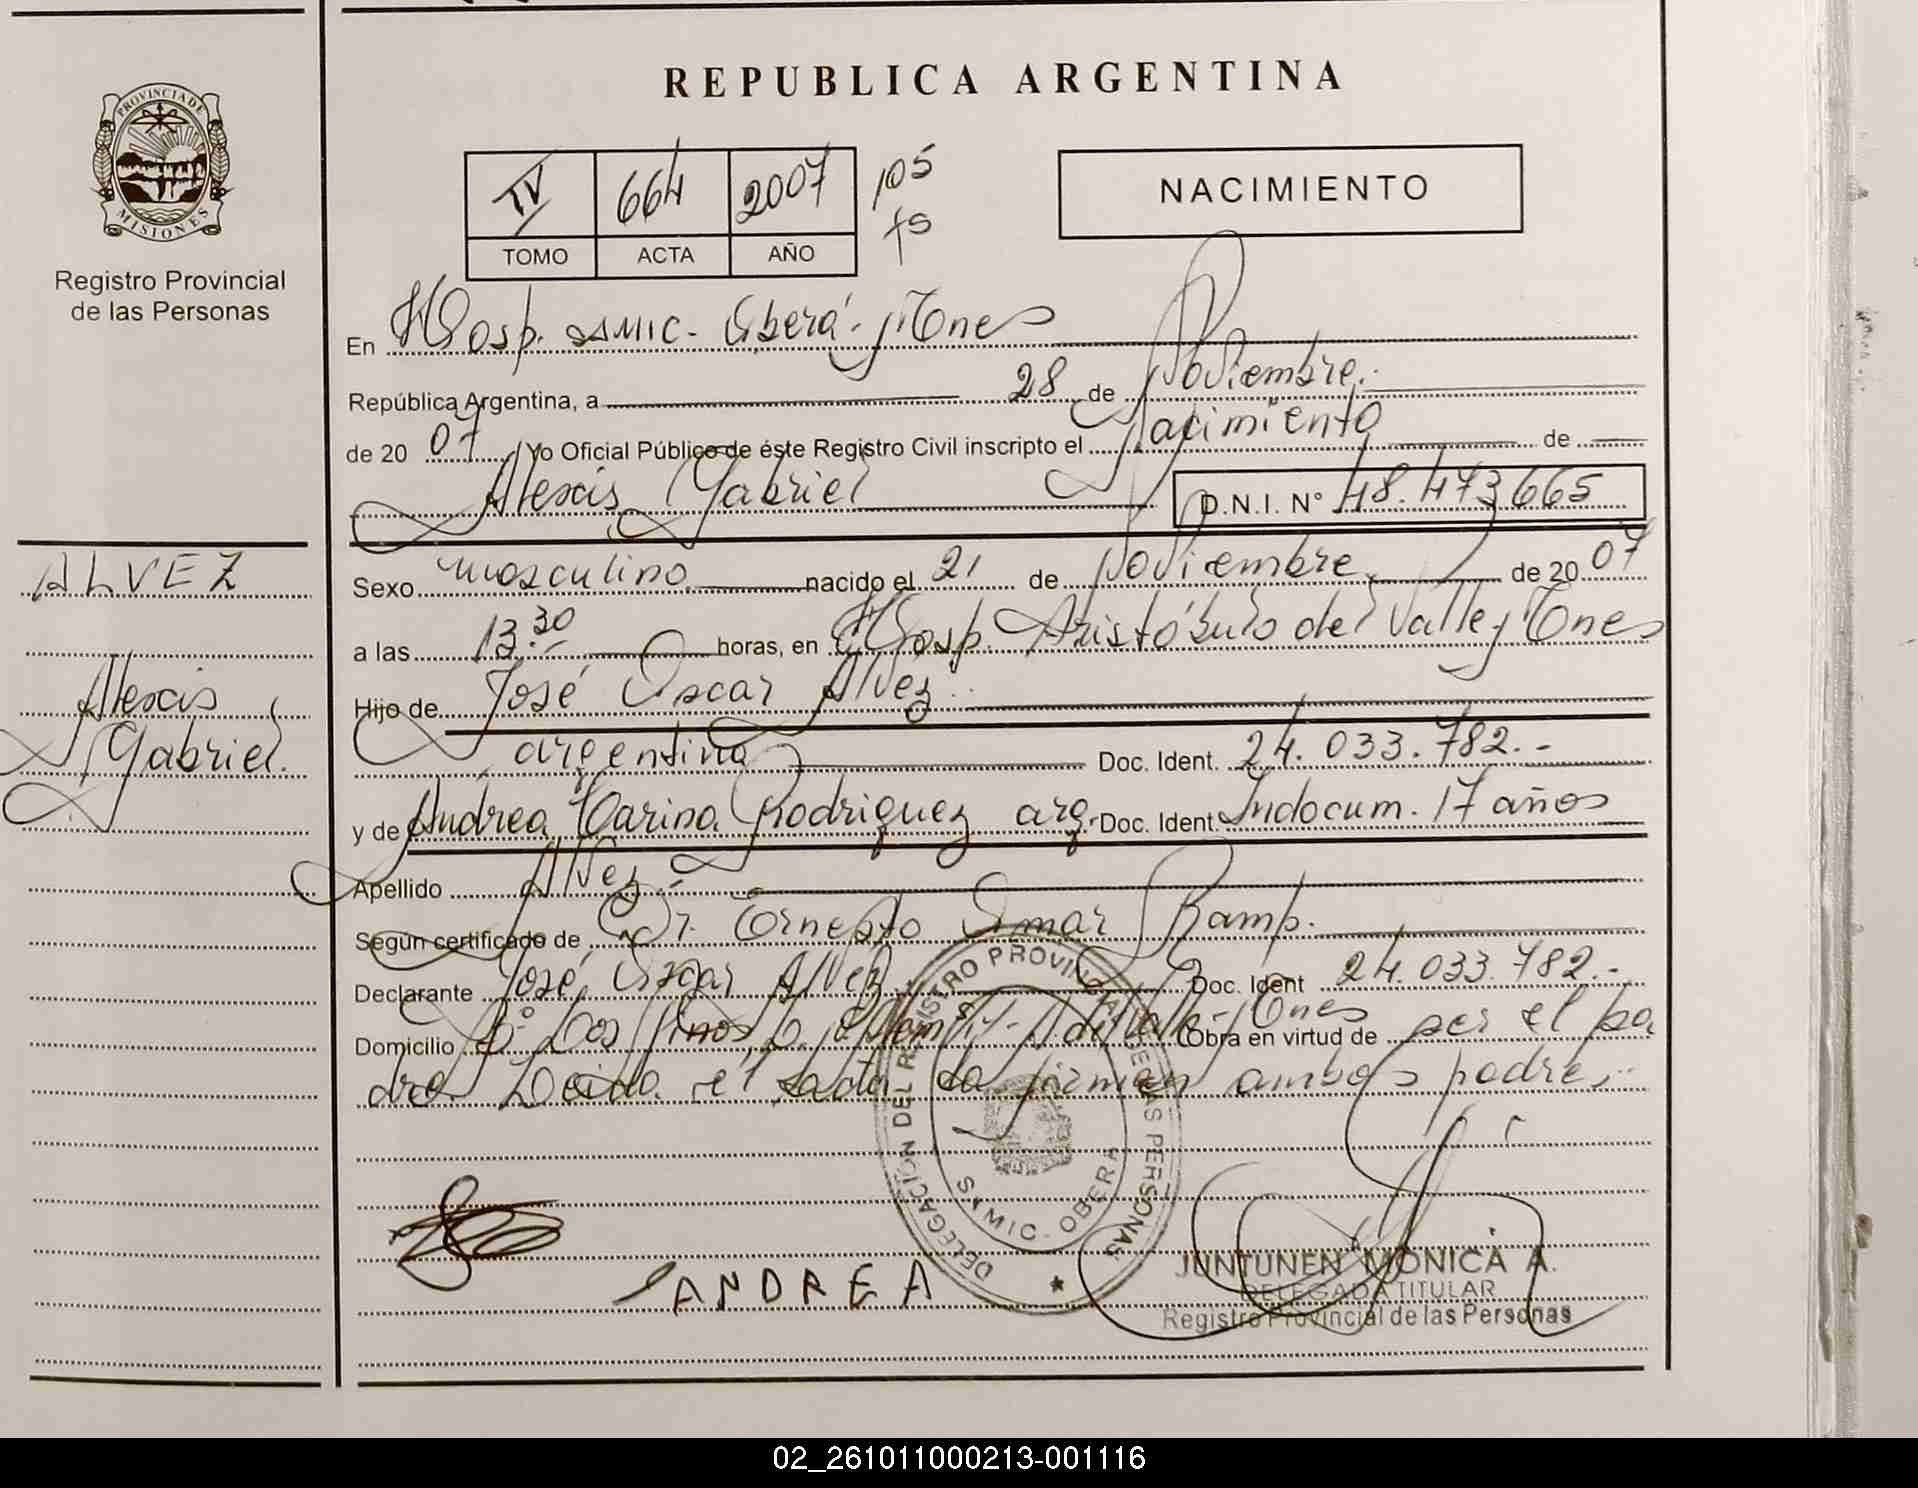 REPUBLICA ARGENTINA
PROVINCIA DE MISIONES
Registro Provincial
de las Personas
IV 664 2007 105
fs
TOMO ACTA AÑO
NACIMIENTO
En Hosp. SAMIC - Oberá - Mnes
República Argentina, a 28 de Noviembre.
de 20 07 Yo Oficial Público de éste Registro Civil inscripto el Nacimiento de
Alexis Gabriel D.N.I. Nº 48.473.665
ALVEZ
Alexis
Gabriel.
Sexo masculino nacido el 21 de Noviembre de 20 07
a las 13.30 horas, en Hosp. Aristóbulo del Valle Mnes
Hijo de José Oscar Alvez
argentina Doc. Ident. 24.033.782.-
y de Andrea Karina Rodriguez arg. Doc. Ident. Indocum. 17 años
Apellido Alvez.-
Según certificado de Dr. Ernesto Omar Ramp.
Declarante José Oscar Alvez Doc. Ident 24.033.782.-
Domicilio Bº Dos Pinos A. del Valle - Mnes Obra en virtud de ser el pa
dre Leída el acta la firman ambos padres
DELEGACION DEL REGISTRO PROVINCIAL DE LAS PERSONAS
SAMIC - OBERA
ANDREA
JUNTUNEN MONICA A.
DELEGADA TITULAR
Registro Provincial de las Personas
02_261011000213-001116